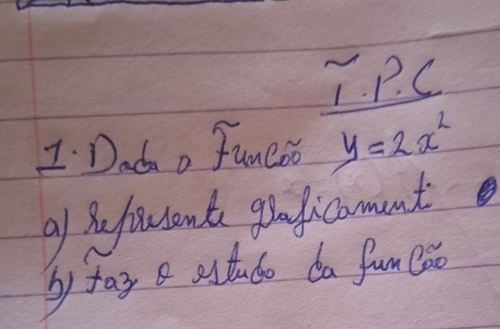 T.P.C
1. Dada a Função y = 2x²
a) represente graficamenti
b) Faz o estudo da função